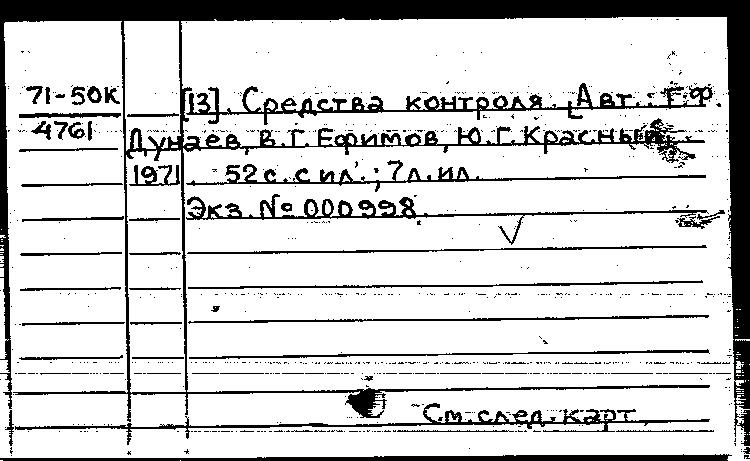 71-50К [13]. Средства контроля. [Авт.: Г.Ф.
4761 Дунаев, В.Г. Ефимов, Ю.Г. Красный.
1971. 52с. с ил.; 7л. ил.
Экз. № 000998.
См. след. карт.